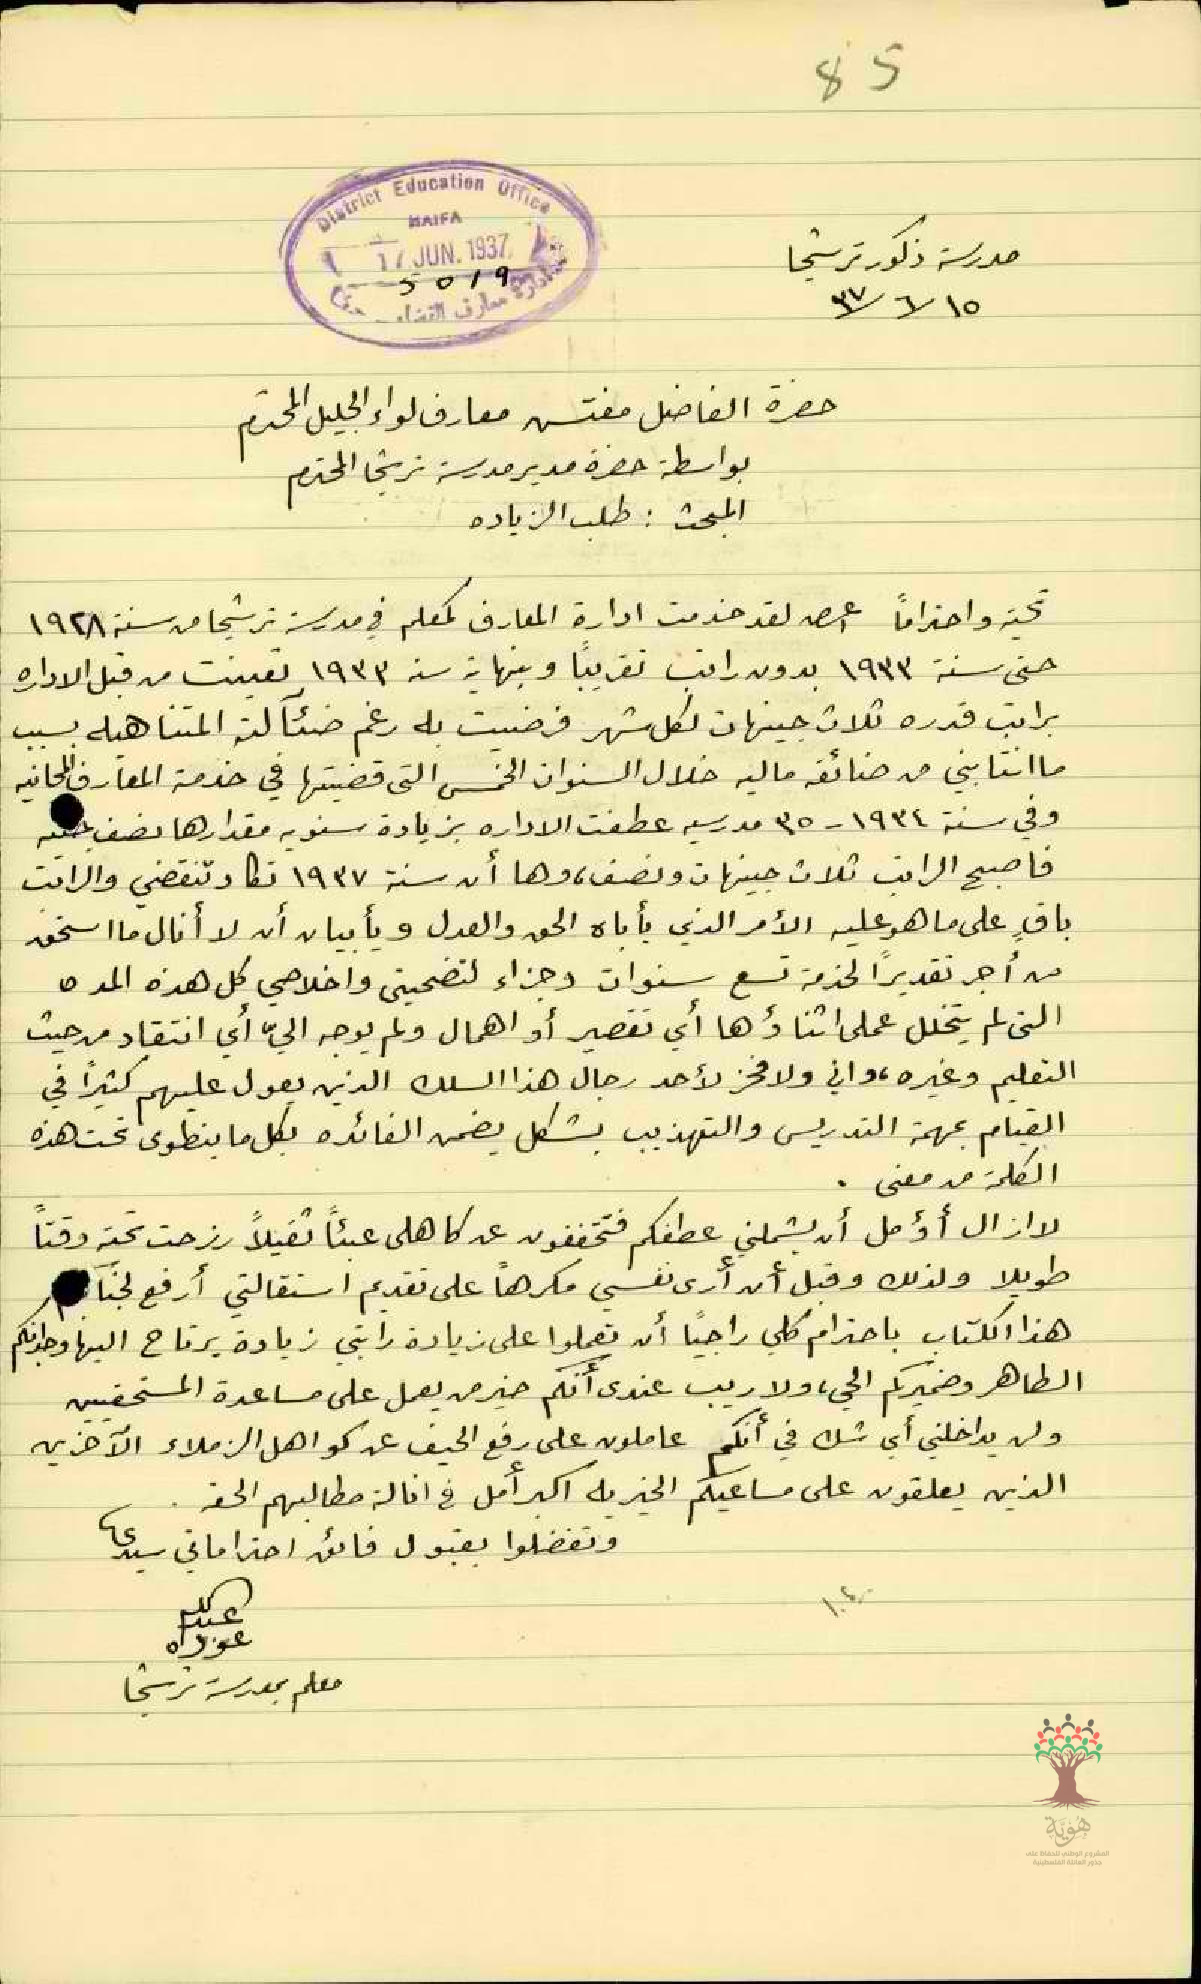 85
District Education Office
HAIFA
17 JUN. 1937
5019
ادارة معارف القضاء حيفا
مدرسة ذكور ترشيحا
١٥/٦/٣٧
حضرة الفاضل مفتش معارف لواء الجليل المحترم
بواسطة حضرة مدير مدرسة ترشيحا المحترم
المبحث : طلب الزياده
تحية واحتراماً لقد خدمت ادارة المعارف كمعلم في مدرسة ترشيحا من سنة ١٩٢٨
حتى سنة ١٩٣٣ بدون راتب تقريباً وبنهاية سنة ١٩٣٣ تعينت من قبل الاداره
براتب قدره ثلاث جينهات لكل شهر فرضيت به رغم ضئآلته المتناهيه بسبب
ما انتابني من ضائقه ماليه خلال السنوات الخمس التي قضيتها في خدمة المعارف المجانيه
وفي سنة ١٩٣٤ - ٣٥ مدرسيه عطفت الاداره بزيادة سنويه مقدارها نصف جنيه
فاصبح الراتب ثلاث جينهات ونصف، وها أن سنة ١٩٣٧ تكاد تنقضي والراتب
باقٍ على ما هو عليه الأمر الذي يأباه الحق والعدل ويأبيان أن لا أنال ما استحق
من أجر تقديراً لخدمة تسع سنوات وجزاء لتضحيتي واخلاصي كل هذه المده
التي لم يتخلل عملي اثناؤها أي تقصير أو اهمال ولم يوجه اليّ أي انتقاد من حيث
التعليم وغيره، واني ولا فخر لأحد رجال هذا السلك الذين يعول عليهم كثيراً في
القيام بمهمة التدريس والتهذيب بشكل يضمن الفائده بكل ما ينطوى تحت هذه
الكلمة من معنى .
لا ازال أؤمل أن يشملني عطفكم فتخففون عن كاهلي عبئاً ثقيلاً رزحت تحته وقتاً
طويلا ولذلك وقبل أن أرى نفسي مكرهاً على تقديم استقالتي أرفع لجنابكم
هذا الكتاب باحترام كلي راجيًا أن تعملوا على زيادة راتبي زيادة يرتاح اليها وجدانكم
الطاهر وضميركم الحي، ولا ريب عندى أنكم خير من يعمل على مساعدة المستحقيين
ولن يداخلني أي شك في أنكم عاملون على رفع الحيف عن كواهل الزملاء الآخرين
الذين يعلقون على مساعيكم الخيريه اكبر أمل في انالة مطالبهم الحقه .
وتفضلوا بقبول فائق احتراماتي سيدى
عبدالله
معلم بمدرسة ترشيحا
هُوِيَّة
المشروع الوطني للحفاظ على
جذور العائلة الفلسطينية